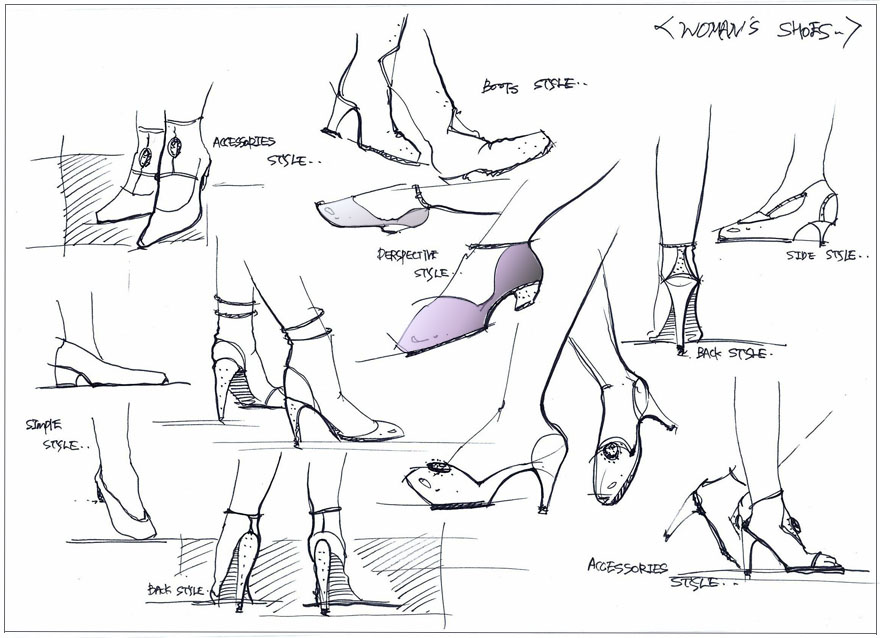 <WOMAN'S SHOES..>
BOOTS STYLE..
ACCESSORIES
STYLE..
PERSPECTIVE
STYLE..
SIDE STYLE..
BACK STYLE.
SIMPLE
STYLE..
BACK STYLE.
ACCESSORIES
STYLE...